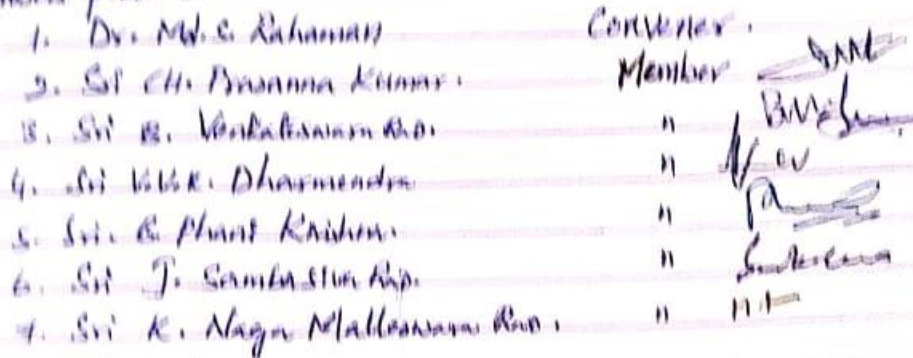 1. Dr. Md. S. Rahaman Convener.
2. Sri CH. Prasanna Kumar. Member
3. Sri B. Venkateswara Rao. "
4. Sri V.V.K. Dharmendra "
5. Sri. B Phani Krishna. "
6. Sri J. Sambasiva Rao. "
7. Sri K. Naga Malleswara Rao. "